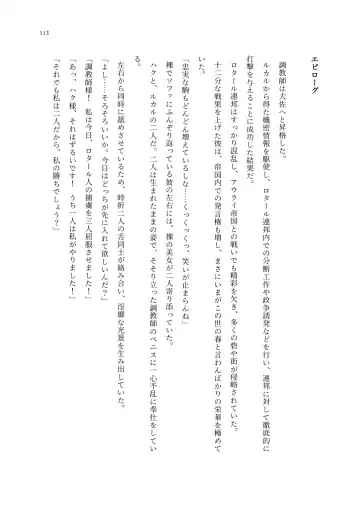 113
エピローグ
調教師は大佐へと昇格した。
ルカルから得た機密情報を駆使し、ロタール連邦内での分断工作や政争誘発などを行い、連邦に対して徹底的に
打撃を与えることに成功した結果だ。
ロタール連邦はすっかり混乱し、アウライ帝国との戦いでも精彩を欠き、多くの砦や街が侵略されていた。
十二分な戦果を上げた彼は、帝国内での発言権も増し、まさにいまがこの世の春と言わんばかりの栄華を極めて
いた。
「忠実な駒もどんどん増えているしな……くっくっくっ、笑いが止まらんね」
裸でソファにふんぞり返っている彼の左右には、裸の美女が二人寄り添っていた。
ハクと、ルカルの二人だ。二人は生まれたままの姿で、そそり立った調教師のペニスに一心不乱に奉仕をしてい
る。
左右から同時に舐めさせているため、時折二人の舌同士が絡み合い、淫靡な光景を生み出していた。
「よし……そろそろいいか。今日はどっちが先に入れて欲しいんだ？」
「調教師様！　私は今日、ロタール人の捕虜を三人屈服させました！」
「あっ、ハク様、それはずるいです！　うち一人は私がやりました！」
「それでも私は二人だから、私の勝ちでしょう？」